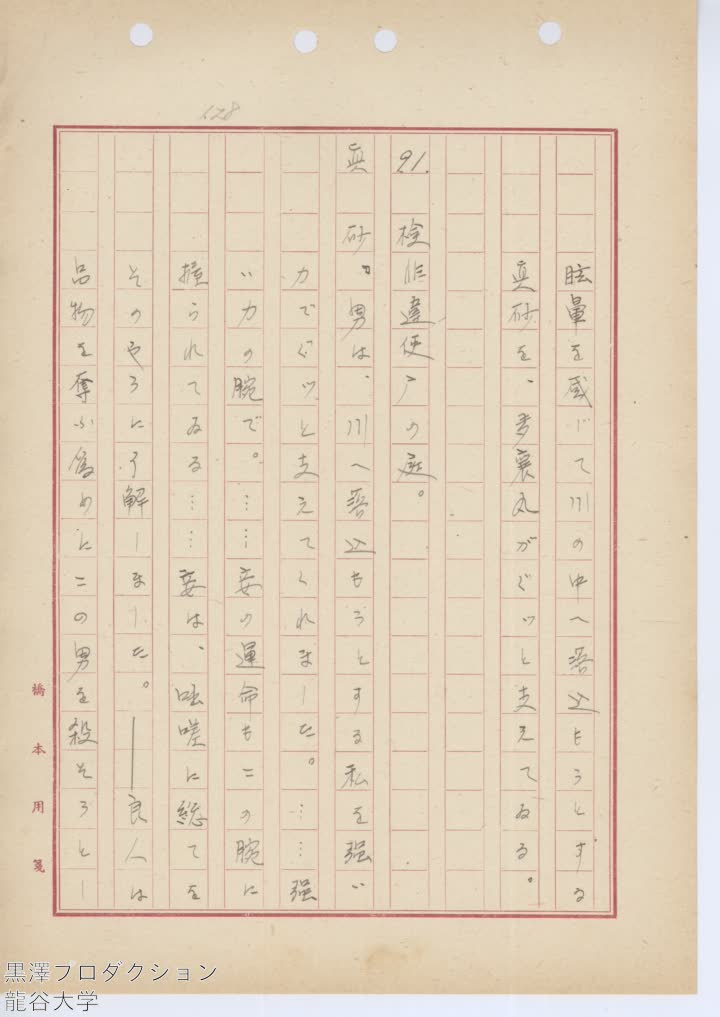 128
眩暈を感じて川の中へ落込もうとする
真砂を、多襄丸がぐッと支えてゐる。
91. 検非違使庁の庭。
真砂。男は、川へ落込もうとする私を強い
力でぐッと支えてくれました。……強
い力の腕で。……妾の運命もこの腕に
握られてゐる……妾は、咄嗟に総てを
そのやうに了解しました。――良人は
品物を奪ふ為めにこの男を殺そうとし
橋本用箋
黒澤プロダクション
龍谷大学